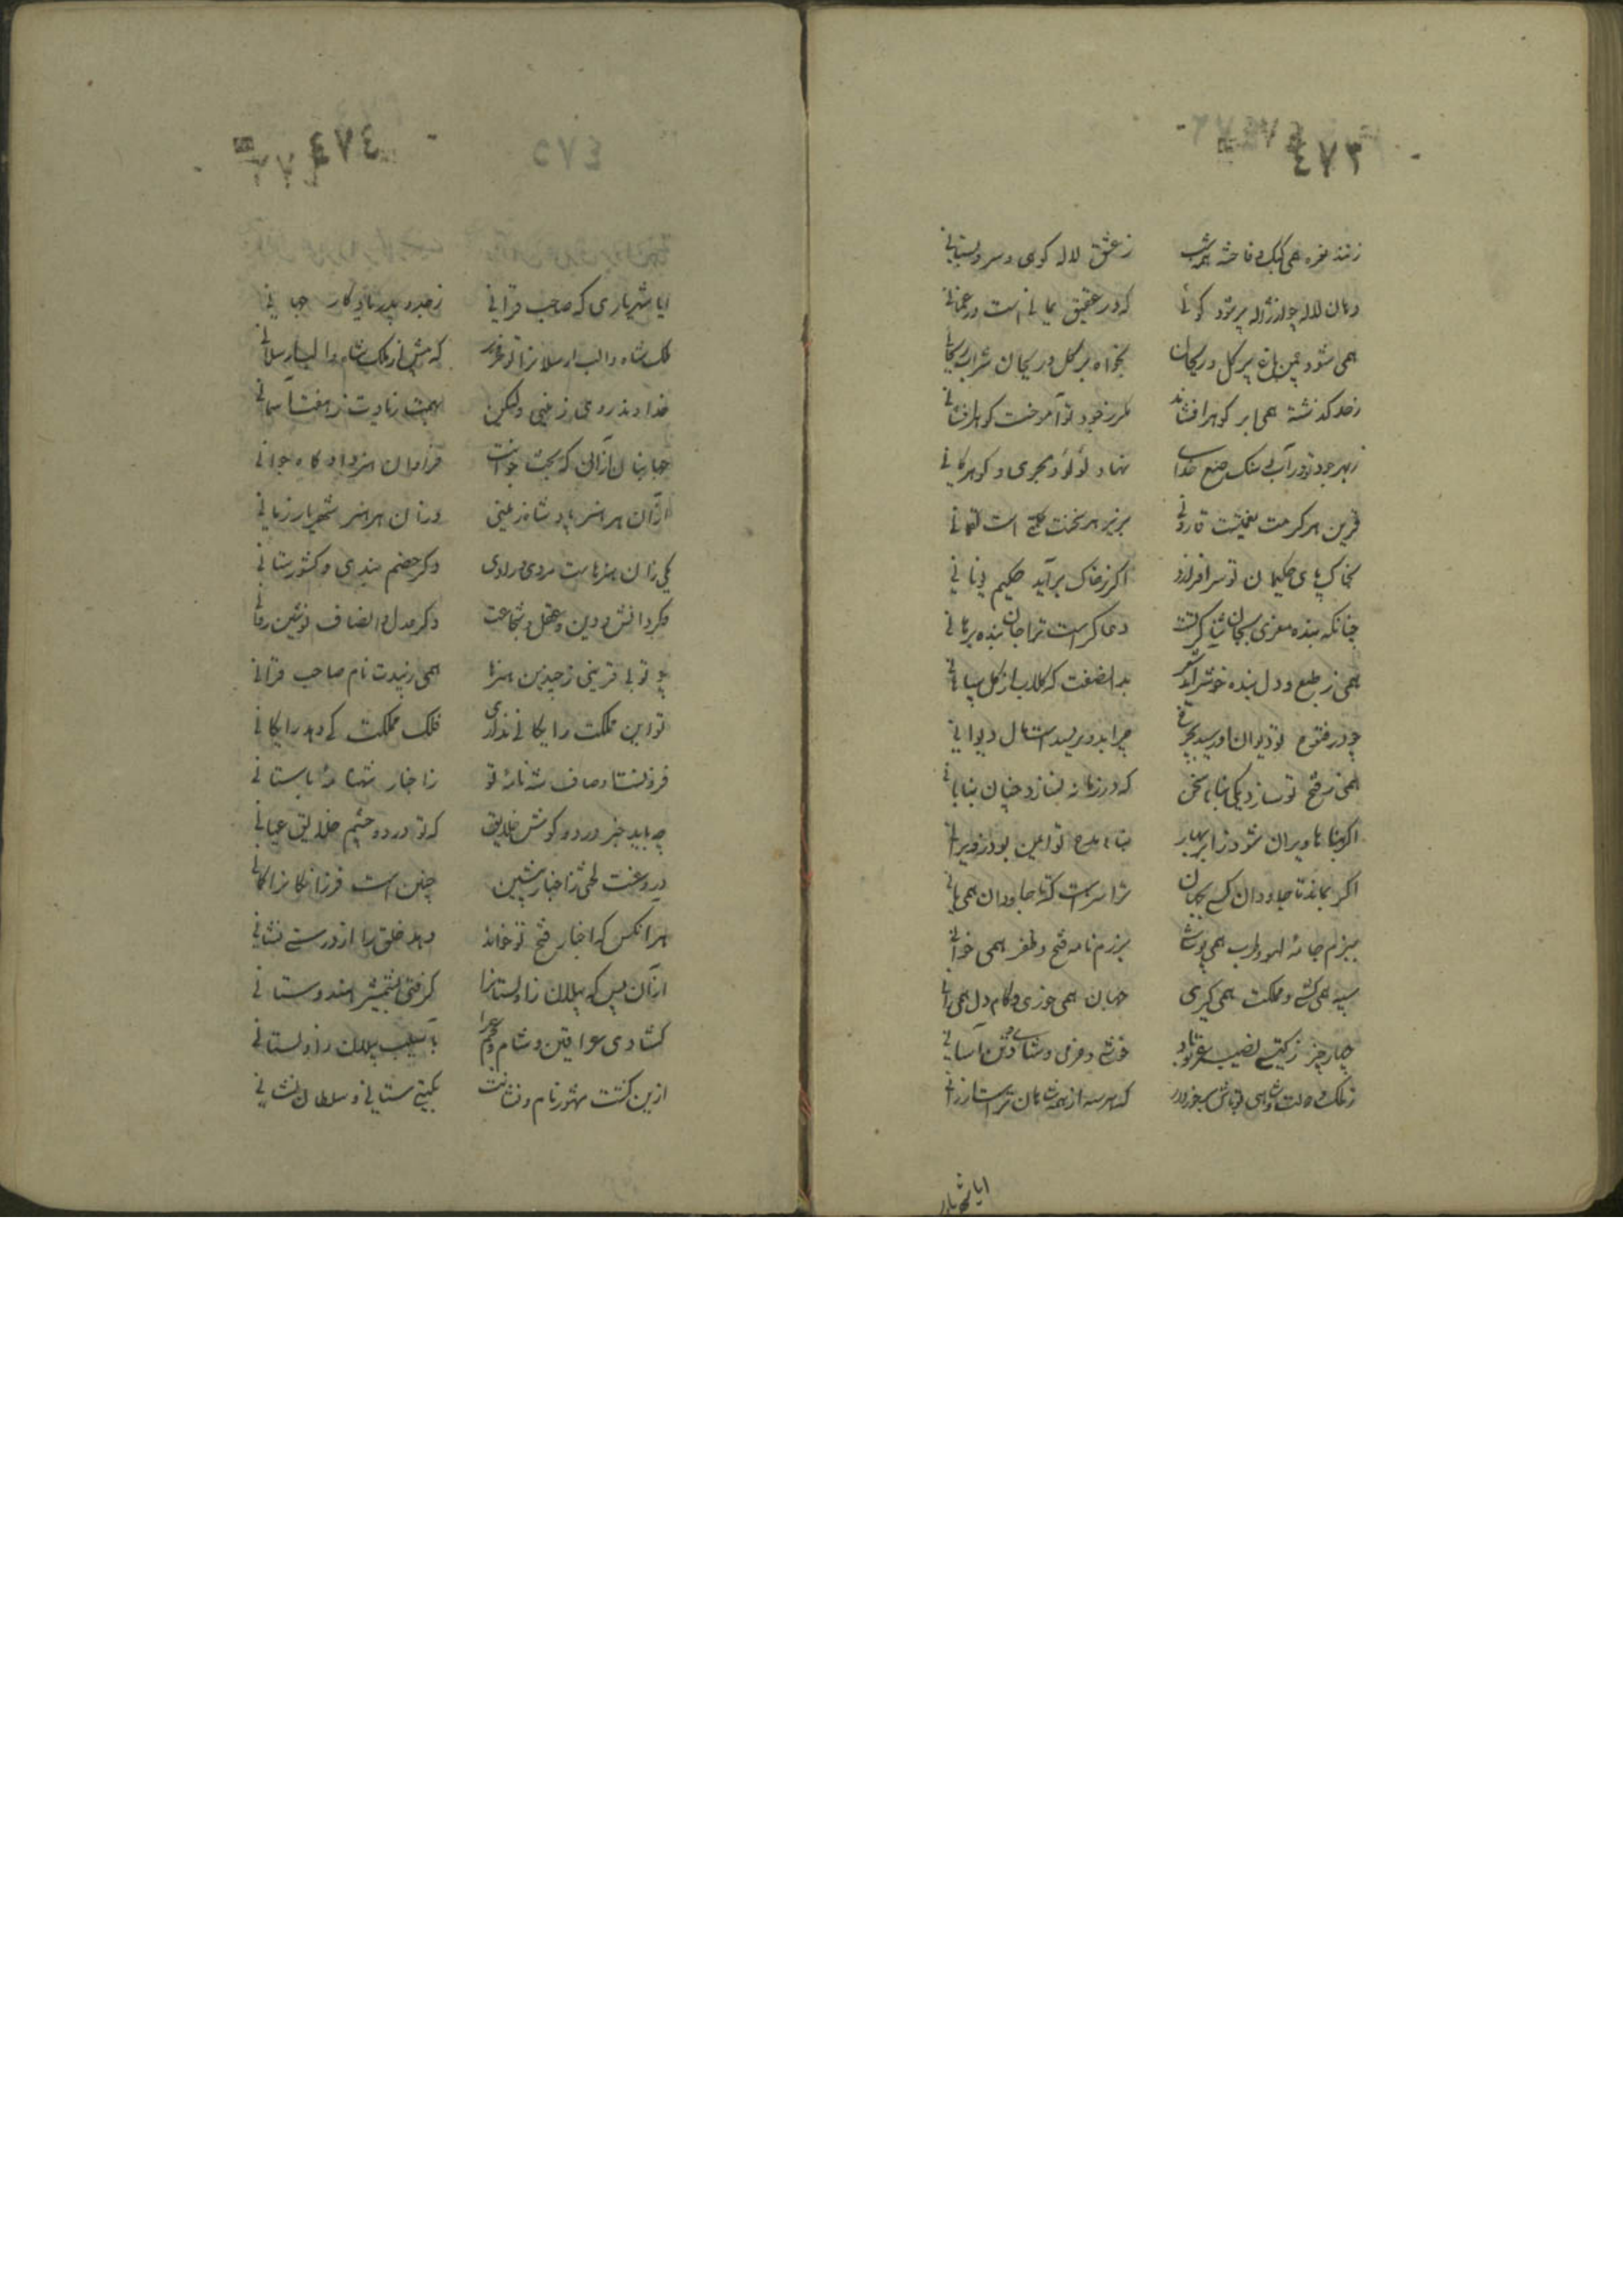 ٤٧٣
زنند نعره همی کبک و فاخته همه شب ز عشق لاله کوهی و سرو بستانی
دهان لاله چو از ژاله پر شود کوئی که در عقیق یمانی است در عمانی
همی شود چمن باغ پر گل و ریحان بخواه بر گل و ریحان شراب ریحانی
ز حد گذشته همی ابر گوهر افشاند مگر ز جود تو آموخت گوهر افشانی
ز بهر جود تو در آب و سنگ صنع خدای نهاد لؤلؤ بحری و گوهر کانی
قرین هر کرمت نعمتیست قارونی بزیر هر سخنت حکمتی است لقمانی
بخاک پای حکیمان تو سر افرازد اگر ز خاک برآید حکیم یونانی
چنانکه بنده معزی بجان ثناگر تست دعاگر است ترا جان بنده برهانی
همی ز طبع و دل بنده خوشتر آید شعر بدان صفت که گلاب از گل سپاهانی
چو در فتوح تو دیوان او رسید بچرخ
همی ز فتح تو سازد یکی بنا بسخن که در زمانه نسازد چنان بنا بانی
اگر بناها ویران شود ز ابر بهار بناء مدح تو ایمن بود ز ویرانی
اگر بماند تا جاودان کسی بجهان ترا سزاست که تا جاودان همی مانی
ببزم جامه لهو و طرب همی پوشی برزم نامه فتح و ظفر همی خوانی
سپه همی کشی و مملکت همی گیری جهان همی خوری و کام دل همی رانی
چهار چیز ز گیتی نصیب عز تو باد خوشی و خرمی و شادی و تن آسانی
ز ملک و دولت و شاهی تو باش برخوردار که هر سه از همه شاهان ترا است ارزانی
ایا شهریار
٤٧٤
ایا شهریاری که صاحب قرانی ز جد و پدر یادگار جهانی
ملک شاه و الب ارسلان را تو فخری که پیش از ملک شاه و الب ارسلانی
خداوند روی زمینی ولیکن بهمت زیادت ز هفت آسمانی
جهانبان از آنی که بخت جوانست فراوان هنر داد گاه جوانی
از آن هر هنر پادشاه زمینی وزان هر هنر شهریار زمانی
یکی زان هنرهاست مردی و رادی دگر خصم بندی و کشور ستانی
دگر دانش و دین و عقل و شجاعت دگر عدل و انصاف نوشین روانی
چو تو بی قرینی ز چندین هنرها همی زیبدت نام صاحب قرانی
تو این مملکت رایگانی نداری فلک مملکت کی دهد رایگانی
فرو شست اوصاف شه نامه تو ز اخبار شهنامه باستانی
چه باید خبر در دو گوش خلایق که تو در دو چشم خلایق عیانی
دروغست لختی ز اخبار پیشین چنین است فرزانگان را گمانی
هر آنکس که اخبار فتح تو خواند دهد خلق را از درستی نشانی
از آن پس که پیلان زاولستان را گرفتی بشمشیر هندوستانی
گشادی عراقین و شام و عجم را بآسیب پیلان زاولستانی
ازین گشت مشهور نام و نشانت بگیتی ستانی و سلطان نشانی